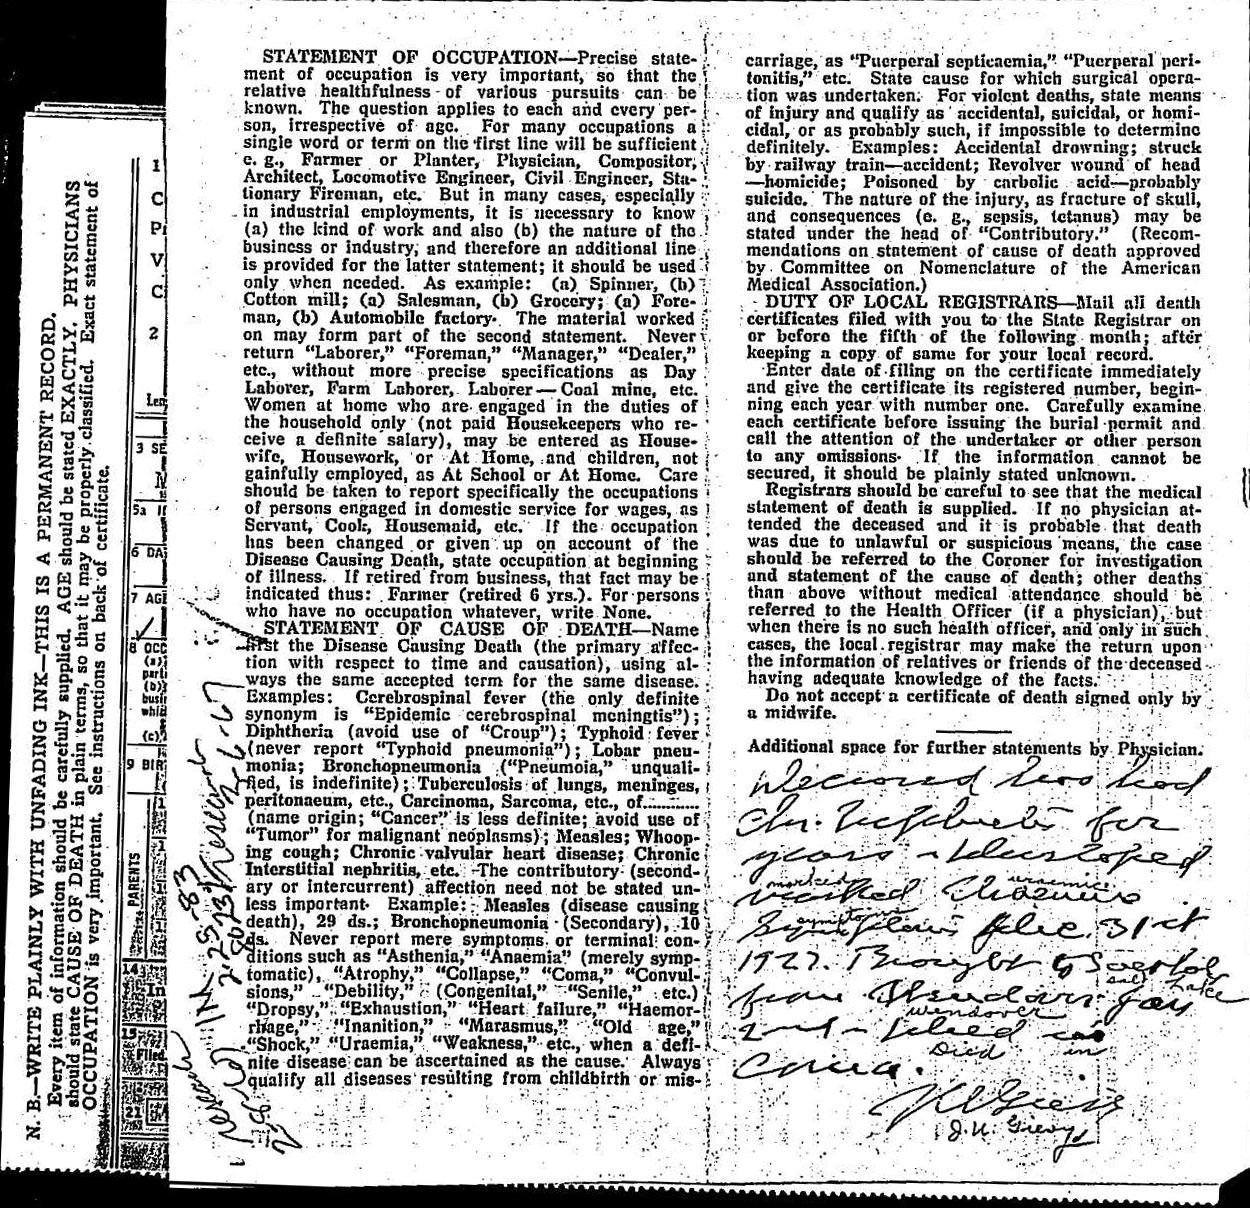 N. B.—WRITE PLAINLY WITH UNFADING INK—THIS IS A PERMANENT RECORD.
Every item of information should be carefully supplied. AGE should be stated EXACTLY. PHYSICIANS
should state CAUSE OF DEATH in plain terms, so that it may be properly classified. Exact statement of
OCCUPATION is very important. See instructions on back of certificate.
1
C
V
C
2
3 SE
5a
6 DA
7 AGE
8 OCC
(a)
(b)
(c)
9 BIR
PARENTS
14
In
15
Filed
21
STATEMENT OF OCCUPATION—Precise state-
ment of occupation is very important, so that the
relative healthfulness of various pursuits can be
known. The question applies to each and every per-
son, irrespective of age. For many occupations a
single word or term on the first line will be sufficient
e. g., Farmer or Planter, Physician, Compositor,
Architect, Locomotive Engineer, Civil Engineer, Sta-
tionary Fireman, etc. But in many cases, especially
in industrial employments, it is necessary to know
(a) the kind of work and also (b) the nature of the
business or industry, and therefore an additional line
is provided for the latter statement; it should be used
only when needed. As example: (a) Spinner, (b)
Cotton mill; (a) Salesman, (b) Grocery; (a) Fore-
man, (b) Automobile factory. The material worked
on may form part of the second statement. Never
return "Laborer," "Foreman," "Manager," "Dealer,"
etc., without more precise specifications as Day
Laborer, Farm Laborer, Laborer—Coal mine, etc.
Women at home who are engaged in the duties of
the household only (not paid Housekeepers who re-
ceive a definite salary), may be entered as House-
wife, Housework, or At Home, and children, not
gainfully employed, as At School or At Home. Care
should be taken to report specifically the occupations
of persons engaged in domestic service for wages, as
Servant, Cook, Housemaid, etc. If the occupation
has been changed or given up on account of the
Disease Causing Death, state occupation at beginning
of illness. If retired from business, that fact may be
indicated thus: Farmer (retired 6 yrs.). For persons
who have no occupation whatever, write None.
STATEMENT OF CAUSE OF DEATH—Name
first the Disease Causing Death (the primary affec-
tion with respect to time and causation), using al-
ways the same accepted term for the same disease.
Examples: Cerebrospinal fever (the only definite
synonym is "Epidemic cerebrospinal meningtis");
Diphtheria (avoid use of "Croup"); Typhoid fever
(never report "Typhoid pneumonia"); Lobar pneu-
monia; Bronchopneumonia ("Pneumoia," unquali-
fied, is indefinite); Tuberculosis of lungs, meninges,
peritonaeum, etc., Carcinoma, Sarcoma, etc., of............
(name origin; "Cancer" is less definite; avoid use of
"Tumor" for malignant neoplasms); Measles; Whoop-
ing cough; Chronic valvular heart disease; Chronic
Interstitial nephritis, etc. The contributory (second-
ary or intercurrent) affection need not be stated un-
less important. Example: Measles (disease causing
death), 29 ds.; Bronchopneumonia (Secondary), 10
ds. Never report mere symptoms or terminal con-
ditions such as "Asthenia," "Anaemia" (merely symp-
tomatic), "Atrophy," "Collapse," "Coma," "Convul-
sions," "Debility," (Congenital," "Senile," etc.)
"Dropsy," "Exhaustion," "Heart failure," "Haemor-
rhage," "Inanition," "Marasmus," "Old age,"
"Shock," "Uraemia," "Weakness," etc., when a defi-
nite disease can be ascertained as the cause. Always
qualify all diseases resulting from childbirth or mis-
carriage, as "Puerperal septicaemia," "Puerperal peri-
tonitis," etc. State cause for which surgical opera-
tion was undertaken. For violent deaths, state means
of injury and qualify as accidental, suicidal, or homi-
cidal, or as probably such, if impossible to determine
definitely. Examples: Accidental drowning; struck
by railway train—accident; Revolver wound of head
—homicide; Poisoned by carbolic acid—probably
suicide. The nature of the injury, as fracture of skull,
and consequences (e. g., sepsis, tetanus) may be
stated under the head of "Contributory." (Recom-
mendations on statement of cause of death approved
by Committee on Nomenclature of the American
Medical Association.)
DUTY OF LOCAL REGISTRARS—Mail all death
certificates filed with you to the State Registrar on
or before the fifth of the following month; after
keeping a copy of same for your local record.
Enter date of filing on the certificate immediately
and give the certificate its registered number, begin-
ning each year with number one. Carefully examine
each certificate before issuing the burial permit and
call the attention of the undertaker or other person
to any omissions. If the information cannot be
secured, it should be plainly stated unknown.
Registrars should be careful to see that the medical
statement of death is supplied. If no physician at-
tended the deceased and it is probable that death
was due to unlawful or suspicious means, the case
should be referred to the Coroner for investigation
and statement of the cause of death; other deaths
than above without medical attendance should be
referred to the Health Officer (if a physician), but
when there is no such health officer, and only in such
cases, the local registrar may make the return upon
the information of relatives or friends of the deceased
having adequate knowledge of the facts.
Do not accept a certificate of death signed only by
a midwife.
Additional space for further statements by Physician.
Deceased has had
Chr. Nephritis for
years - developed
marked uraemic
marked Uraemic
symptoms
Symptoms Dec. 31st
1927. Brought to Salt Lake
Salt Lake
from Wendover Jan
Wendover
2nd - died in
Died in
Coma.
J. U. Giesy